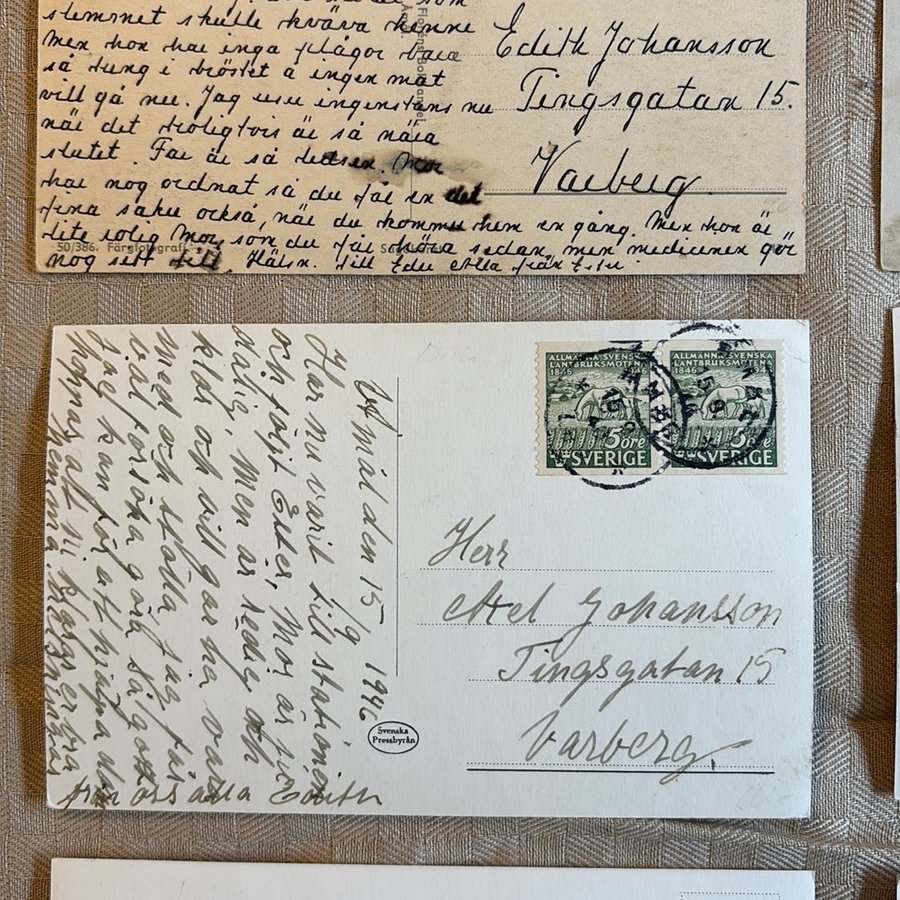 slemmet skulle kväva henne
Men hon har inga plågor bara
så tung i bröstet å ingen mat
vill gå ner. Jag reser ingenstans nu
när det troligtvis är så nära
slutet. Far är så ledsen. Mor
har nog ordnat så du får en del
fina saker också, när du kommer hem en gång. Men hon är
lite rolig Mor, som du får höra sedan, men medicinen gör
nog sitt till. Hälsn. till Eder Alla från
50/386. Färgfotografi
Edith Johansson
Tingsgatan 15.
Varberg.
Åmål den 15/9 1946
Har nu varit till stationen
och följt Eder, Mor är
dålig, men är redig och
klar och vill gärna vara
med och ställa, jag får
väl försöka göra så gott
jag kan för att hjälpa
hoppas att ni klarar er bra
hemma. Hälsningar
från oss alla Edith
ALLMÄNNA SVENSKA
LANTBRUKSMÖTEN
1846 1946
5 ÖRE
SVERIGE
ALLMÄNNA SVENSKA
LANTBRUKSMÖTEN
1846 1946
5 ÖRE
SVERIGE
Herr
Axel Johansson
Tingsgatan 15
Varberg.
Svenska
Pressbyrån